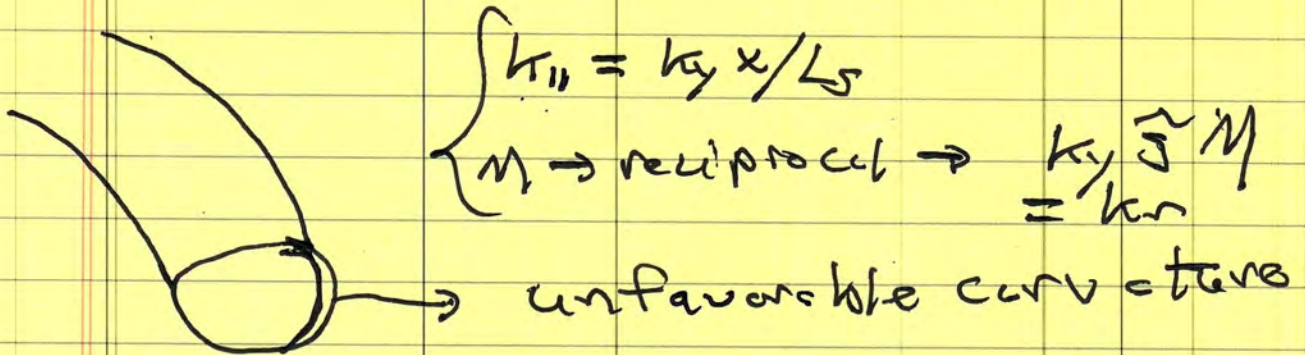 k_{||} = k_y x/L_s
η → reciprocal → k_y ŝ η
= k_r
→ unfavorable curvature